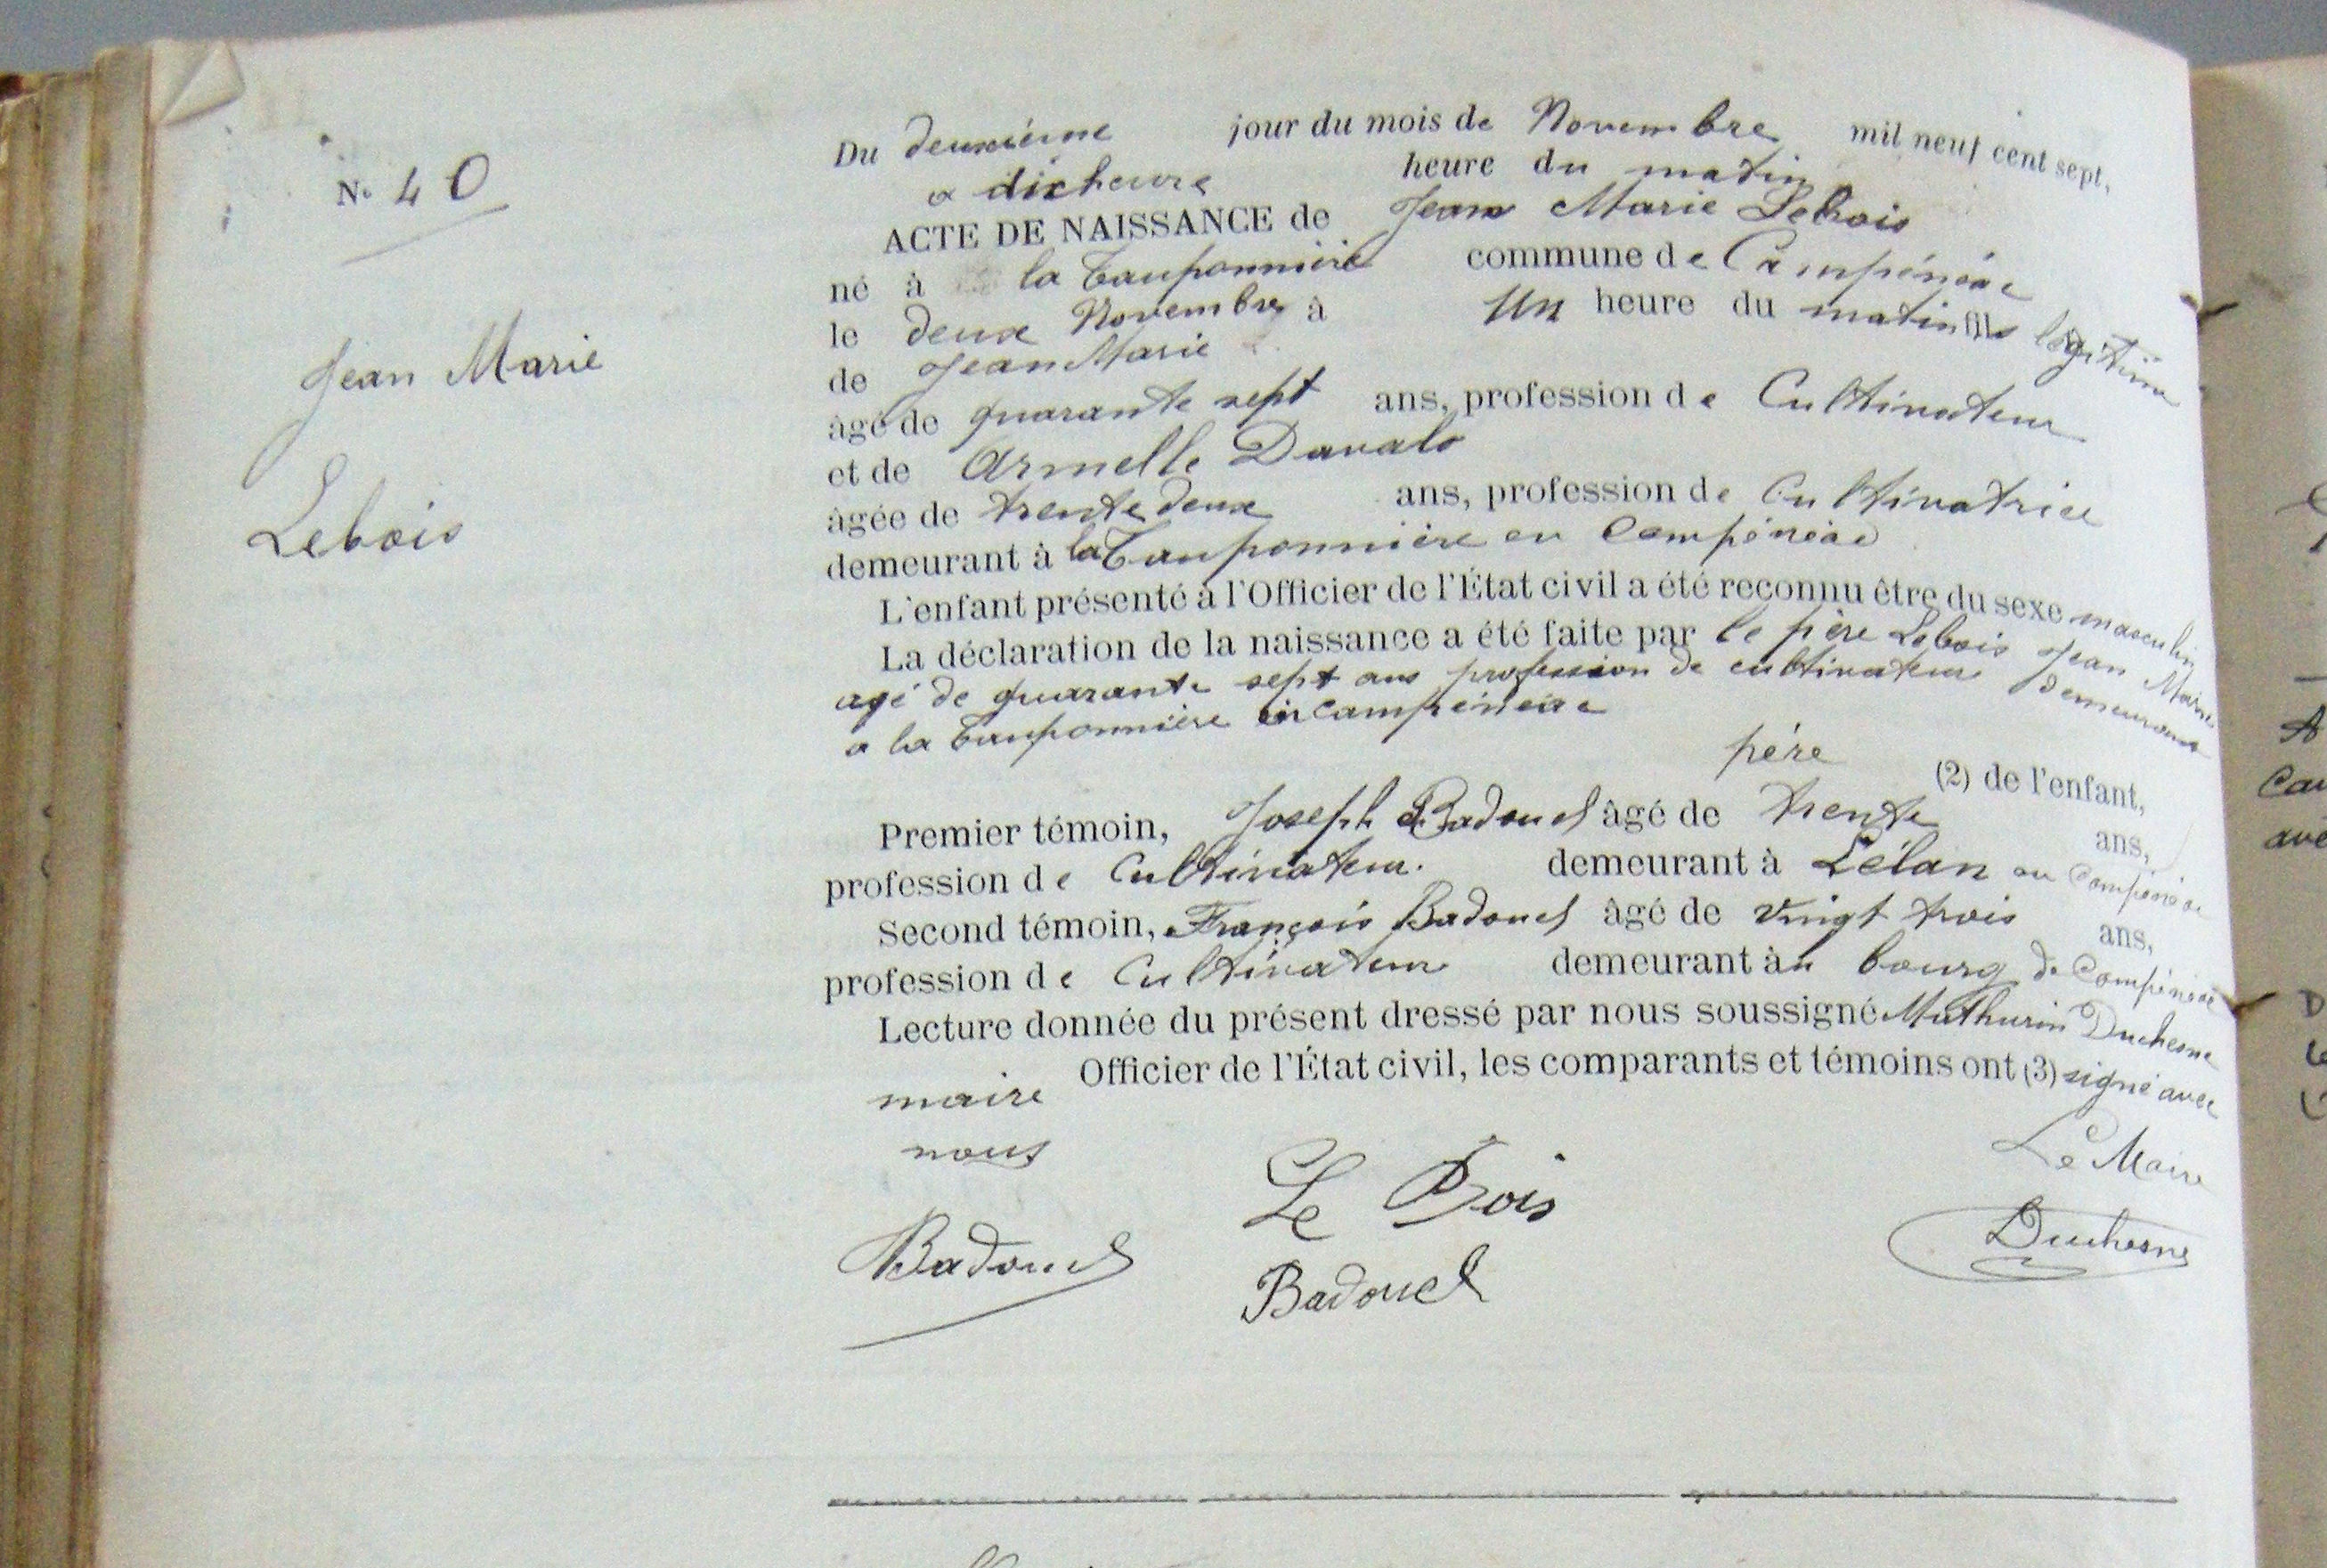 N° 40
Jean Marie
Lebois
Du deuxième jour du mois de Novembre mil neuf cent sept,
a dix heure heure du matin
ACTE DE NAISSANCE de Jean Marie Lebois
né à la Tauponnière commune de Campénéac
le deux Novembre à Un heure du matin fils légitime
de Jean Marie
âgé de quarante sept ans, profession de Cultivateur
et de Armelle Davalo
âgée de trente deux ans, profession de Cultivatrice
demeurant à la Tauponnière en Campénéac
L'enfant présenté à l'Officier de l'État civil a été reconnu être du sexe masculin
La déclaration de la naissance a été faite par le père Lebois Jean Marie
agé de quarante sept ans profession de cultivateur demeurant
a la Tauponnière en Campénéac
père (2) de l'enfant,
Premier témoin, Joseph Badouel âgé de trente ans,
profession de Cultivateur. demeurant à Lélan en Campénéac
Second témoin, François Badouel âgé de vingt trois ans,
profession de Cultivateur demeurant àu bourg de Campénéac
Lecture donnée du présent dressé par nous soussigné Mathurin Duchesne
maire Officier de l'État civil, les comparants et témoins ont (3) signé avec
nous
Le Maire
Le Bois
Badouel
Duchesne
Badouel